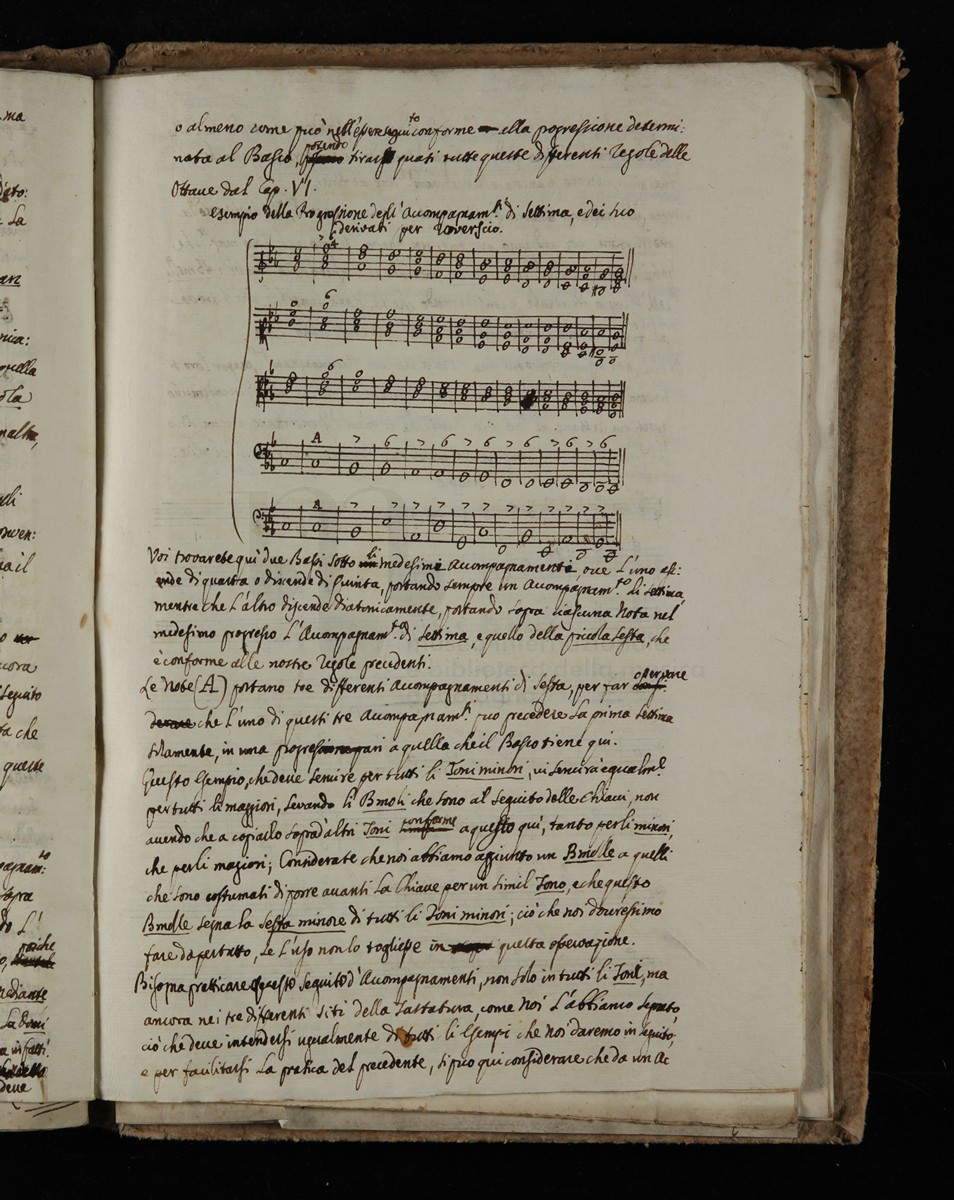 o almeno come può nell'essere seguito conforme ella progressione determi:
nata al Basso, potendo tirarsi quasi tutte queste differenti Regole delle
Ottave dal Cap. VI.
Esempio della Progressione degli Accompagnam.ti di Settima, e dei suo
derivati per Roverscio.
7 6 4
6
6
A 7 6 7 6 7 6 7 6 7 6 7 6
A 7 7 7 7 7 7 7 7 7 7 7
Voi trovarete qui due Bassi sotto li medesimi Accompagnamenti ove l'uno as:
ende di quarta o discende di Quinta, portando sempre un Accompagnam.to di Settima,
mentre che l'altro discende diatonicamente, portando sopra ciascuna Nota nel
medesimo progresso l'Accompagnam.to di Settima, e quello della piccola Sesta, che
è conforme alle nostre Regole precedenti.
Le Note (A) portano tre differenti Accompagnamenti di Sesta, per far
che l'uno di questi tre Accompagnam.ti può precedere la prima Settima
solamente, in una progressione pari a quella che il Basso tiene qui.
Questo Esempio, che deve servire per tutti li Toni minori, vi servirà egualm.e
per tutti li maggiori, levando li Bmoli che sono al seguito delle Chiavi, non
avendo che a copiarlo sopra d'altri Toni conforme a questo qui, tanto per li minori,
che per li magiori; Considerate che noi abbiamo aggiunto un Bmolle a quelli
che sono costumati di porre avanti la Chiave per un simil Tono, e che questo
Bmolle segna la Sesta minore di tutti li Toni minori; ciò che noi dovressimo
fare da pertutto, se l'uso non lo togliesse in questa osservazione.
Bisogna pratticare questo seguito d'Accompagnamenti, non solo in tutti li Toni, ma
ancora nei tre differenti siti della Tastatura, come noi l'abbiamo segnato,
ciò che deve intendersi ugualmente di tutti li Esempi che noi daremo in seguito,
e per facilitarsi la pratica del precedente, si può qui considerare che da un Ac